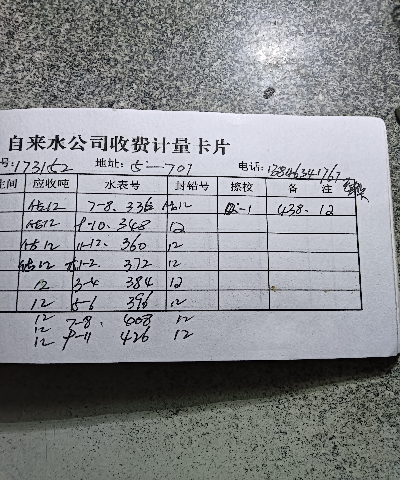 自来水公司收费计量卡片
号:173152 地址:5-701 电话:13846341767
间 应收吨 水表号 封铅号 擦校 备 注
估12 7-8. 336 估12 -1 438. 12
估12 9-10. 348 12
估12 11-12. 360 12
估12 1-2. 372 12
12 3-4 384 12
12 5-6 396 12
12 7-8. 408 12
12 9-11 426 12